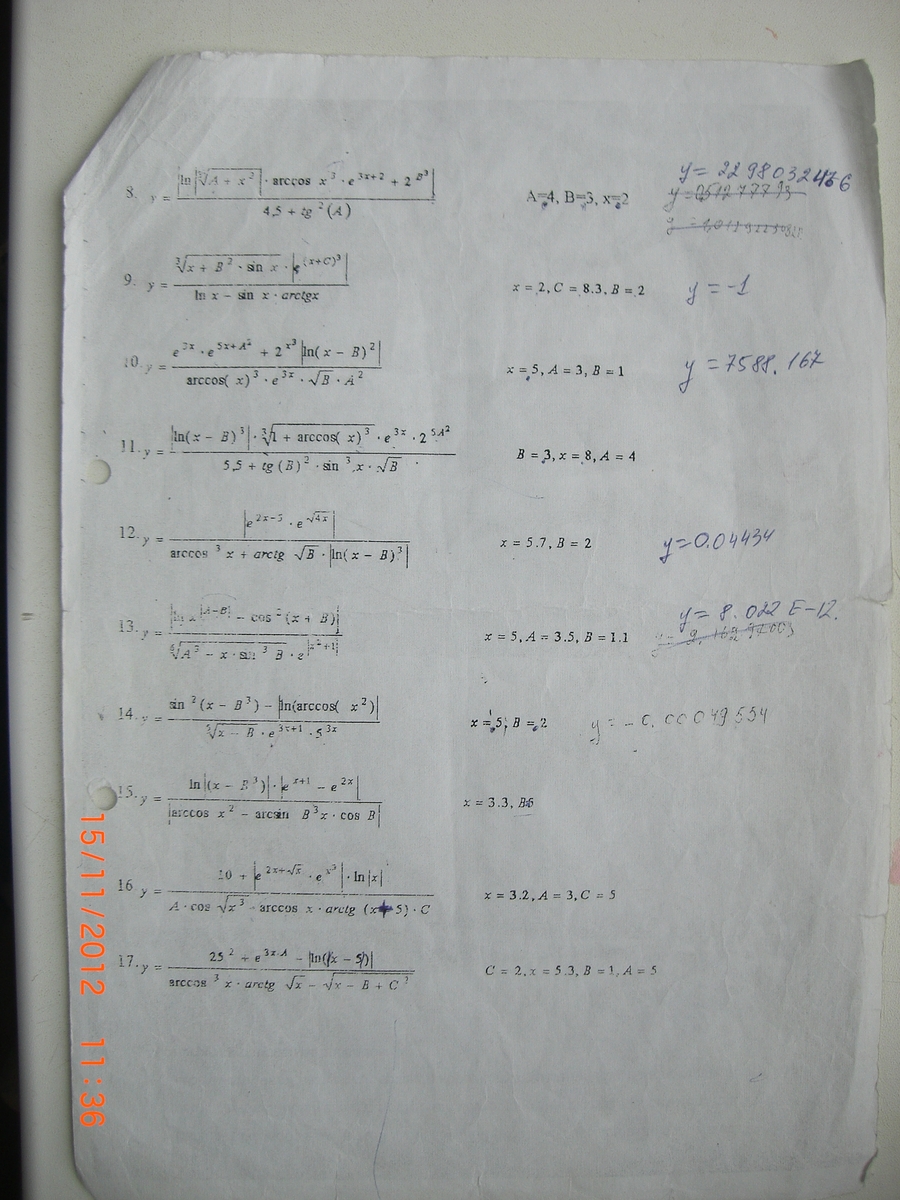 8. y = |ln|∛(A + x²)| · arccos x³ · e^(3x+2) + 2^(B³)| / (4,5 + tg²(A))    A=4, B=3, x=2    y = 2298032466
9. y = ∛(x + B² · sin x) · |e^((x+C)³)| / (ln x − sin x · arctgx)    x = 2, C = 8.3, B = 2    y = -1
10. y = (e^(3x) · e^(5x+A²) + 2^(x³) |ln(x − B)²|) / (arccos(x)³ · e^(3x) · √B · A²)    x = 5, A = 3, B = 1    y = 7588.167
11. y = |ln(x − B)³| · ∛(1 + arccos(x)³) · e^(3x) · 2^(5A²) / (5,5 + tg(B)² · sin³x · √B)    B = 3, x = 8, A = 4
12. y = |e^(2x−5) · e^(√(4x))| / (arccos³x + arctg √B · |ln(x − B)³|)    x = 5.7, B = 2    y=0.04434
13. y = |ln x^|A−B| − cos²(x + B)| / (√(A³ − x · sin³B) · e^|x²+1|)    x = 5, A = 3.5, B = 1.1    y = 8.022 E-12.
14. y = (sin²(x − B³) − |ln(arccos(x²)|) / (√(x − B) · e^(3x+1) · 5^(3x))    x = 5, B = 2    y = -0.00049554
15. y = ln|(x − B³)| · |e^(x+1) − e^(2x)| / |arccos x² − arcsin B³x · cos B|    x = 3.3, B6
16. y = (10 + |e^(2x+√x) · e^(x³)| · ln|x|) / (A · cos √(x³) − arccos x · arctg (x+5) · C)    x = 3.2, A = 3, C = 5
17. y = (25² + e^(3x·A) − |ln(x − 5)|) / (arccos³x · arctg √x − √(x − B + C²))    C = 2, x = 5.3, B = 1, A = 5
15/11/2012 11:36